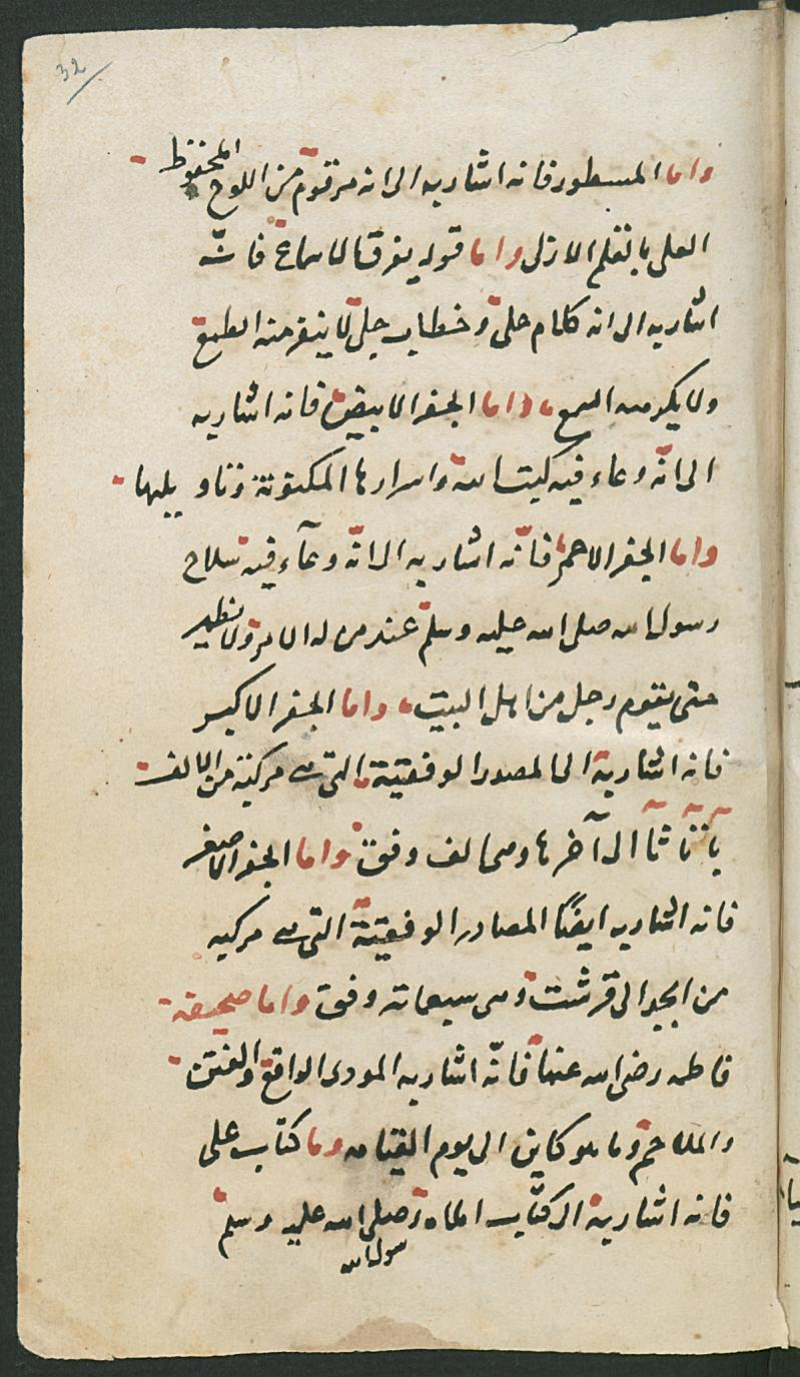 32
واما المسطور فانه اشار به الى انه مرقوم من اللوح المحفوظ
العلى بالقلم الازلى واما قوله يفرق الاسماع فانّه
اشار به الى انه كلام جلىّ وخطاب جلى لا ينفر منه الطبع
ولا يكره السمع واما الجفر الابيض فانه اشار به
الى انّه وعاء فيه كتب الله واسرارها المكنونة وتاويلها
واما الجفر الاحمر فانّه اشار به الى انّه وعآء فيه سلاح
رسول الله صلى الله عليه وسلّم عند من له الامر ولا يظهر
حتى يقوم رجل من اهل البيت واما الجفر الاكبر
فانه اشار به الى المصدر الوفقية التى هى مركبة من الالف
بآ تآ ثآ الى آخرها وهى الف وفق واما الجفر الاصغر
فانه اشار به ايضًا المصادر الوفقية التى هى مركبه
من ابجد الى قرشت وهى سبعمائه وفق واما صحيفة
فاطمه رضى الله عنها فانّه اشار به الواقع والفتن
والملاحم وما هو كاين الى يوم القيامه وما كتاب على
فانه اشار به الى كتاب املاه رسول الله صلى الله عليه وسلم